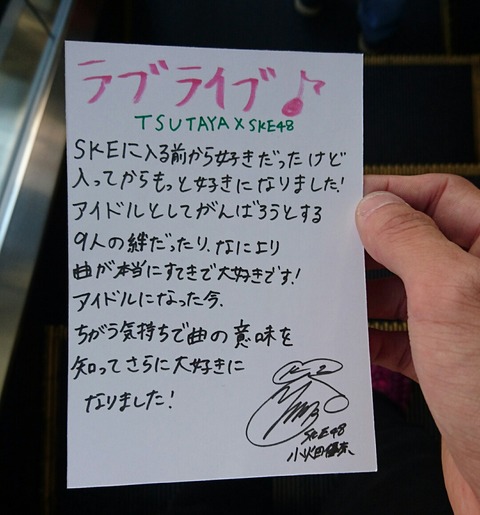 ラブライブ♪
TSUTAYA×SKE48
SKEに入る前から好きだったけど
入ってからもっと好きになりました!
アイドルとしてがんばろうとする
9人の絆だったり、なにより
曲が本当にすてきで大好きです!
アイドルになった今、
ちがう気持ちで曲の意味を
知ってさらに大好きに
なりました!
SKE48
小畑優奈